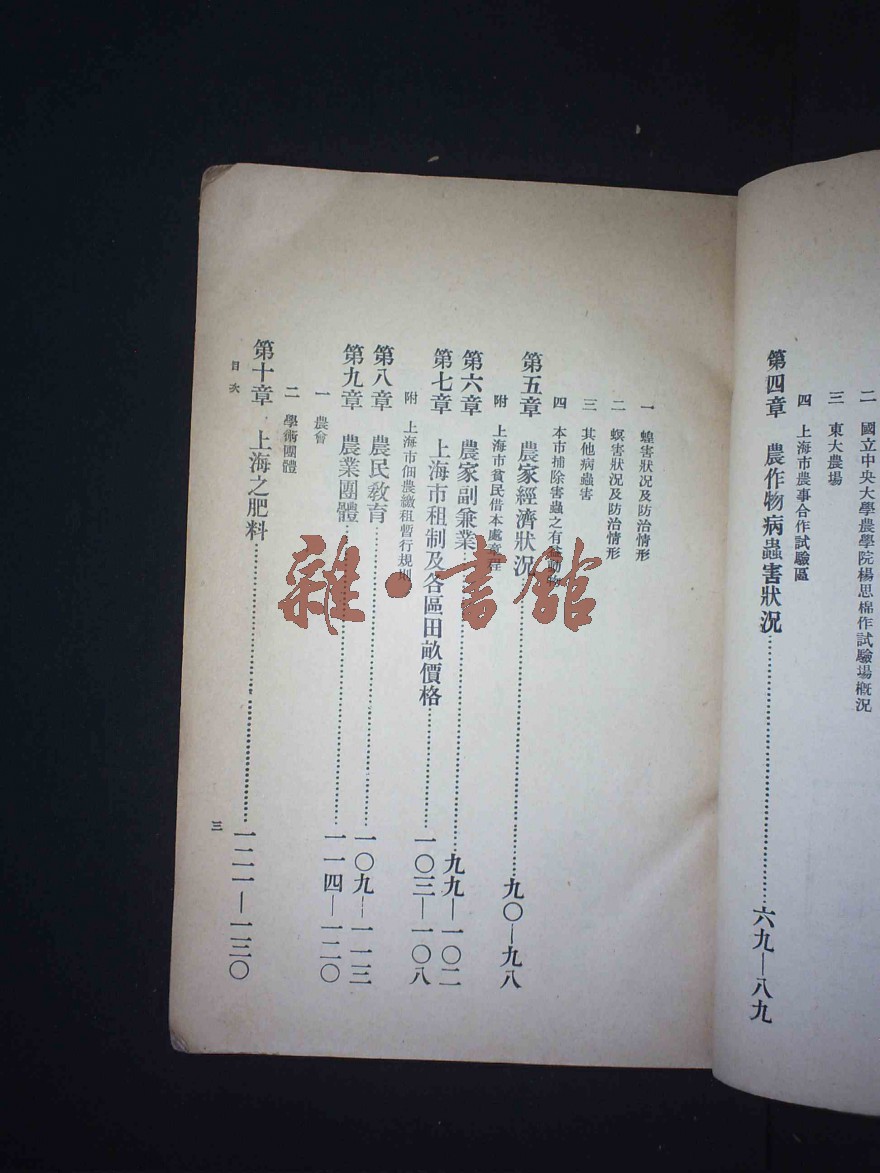 二　國立中央大學農學院楊思棉作試驗場概況
三　東大農場
四　上海市農事合作試驗區
第四章　農作物病蟲害狀況…………六九—八九
一　蝗害狀況及防治情形
二　螟害狀況及防治情形
三　其他病蟲害
四　本市捕除害蟲之有益動物
第五章　農家經濟狀況…………九〇—九八
附　上海市貧民借本處章程
第六章　農家副兼業…………九九—一〇二
第七章　上海市租制及各區田畝價格…………一〇三—一〇八
附　上海市佃農繳租暫行規則
第八章　農民教育…………一〇九—一一三
第九章　農業團體…………一一四—一二〇
一　農會
二　學術團體
第十章　上海之肥料…………一二一—一三〇
目次
三
雜·書館